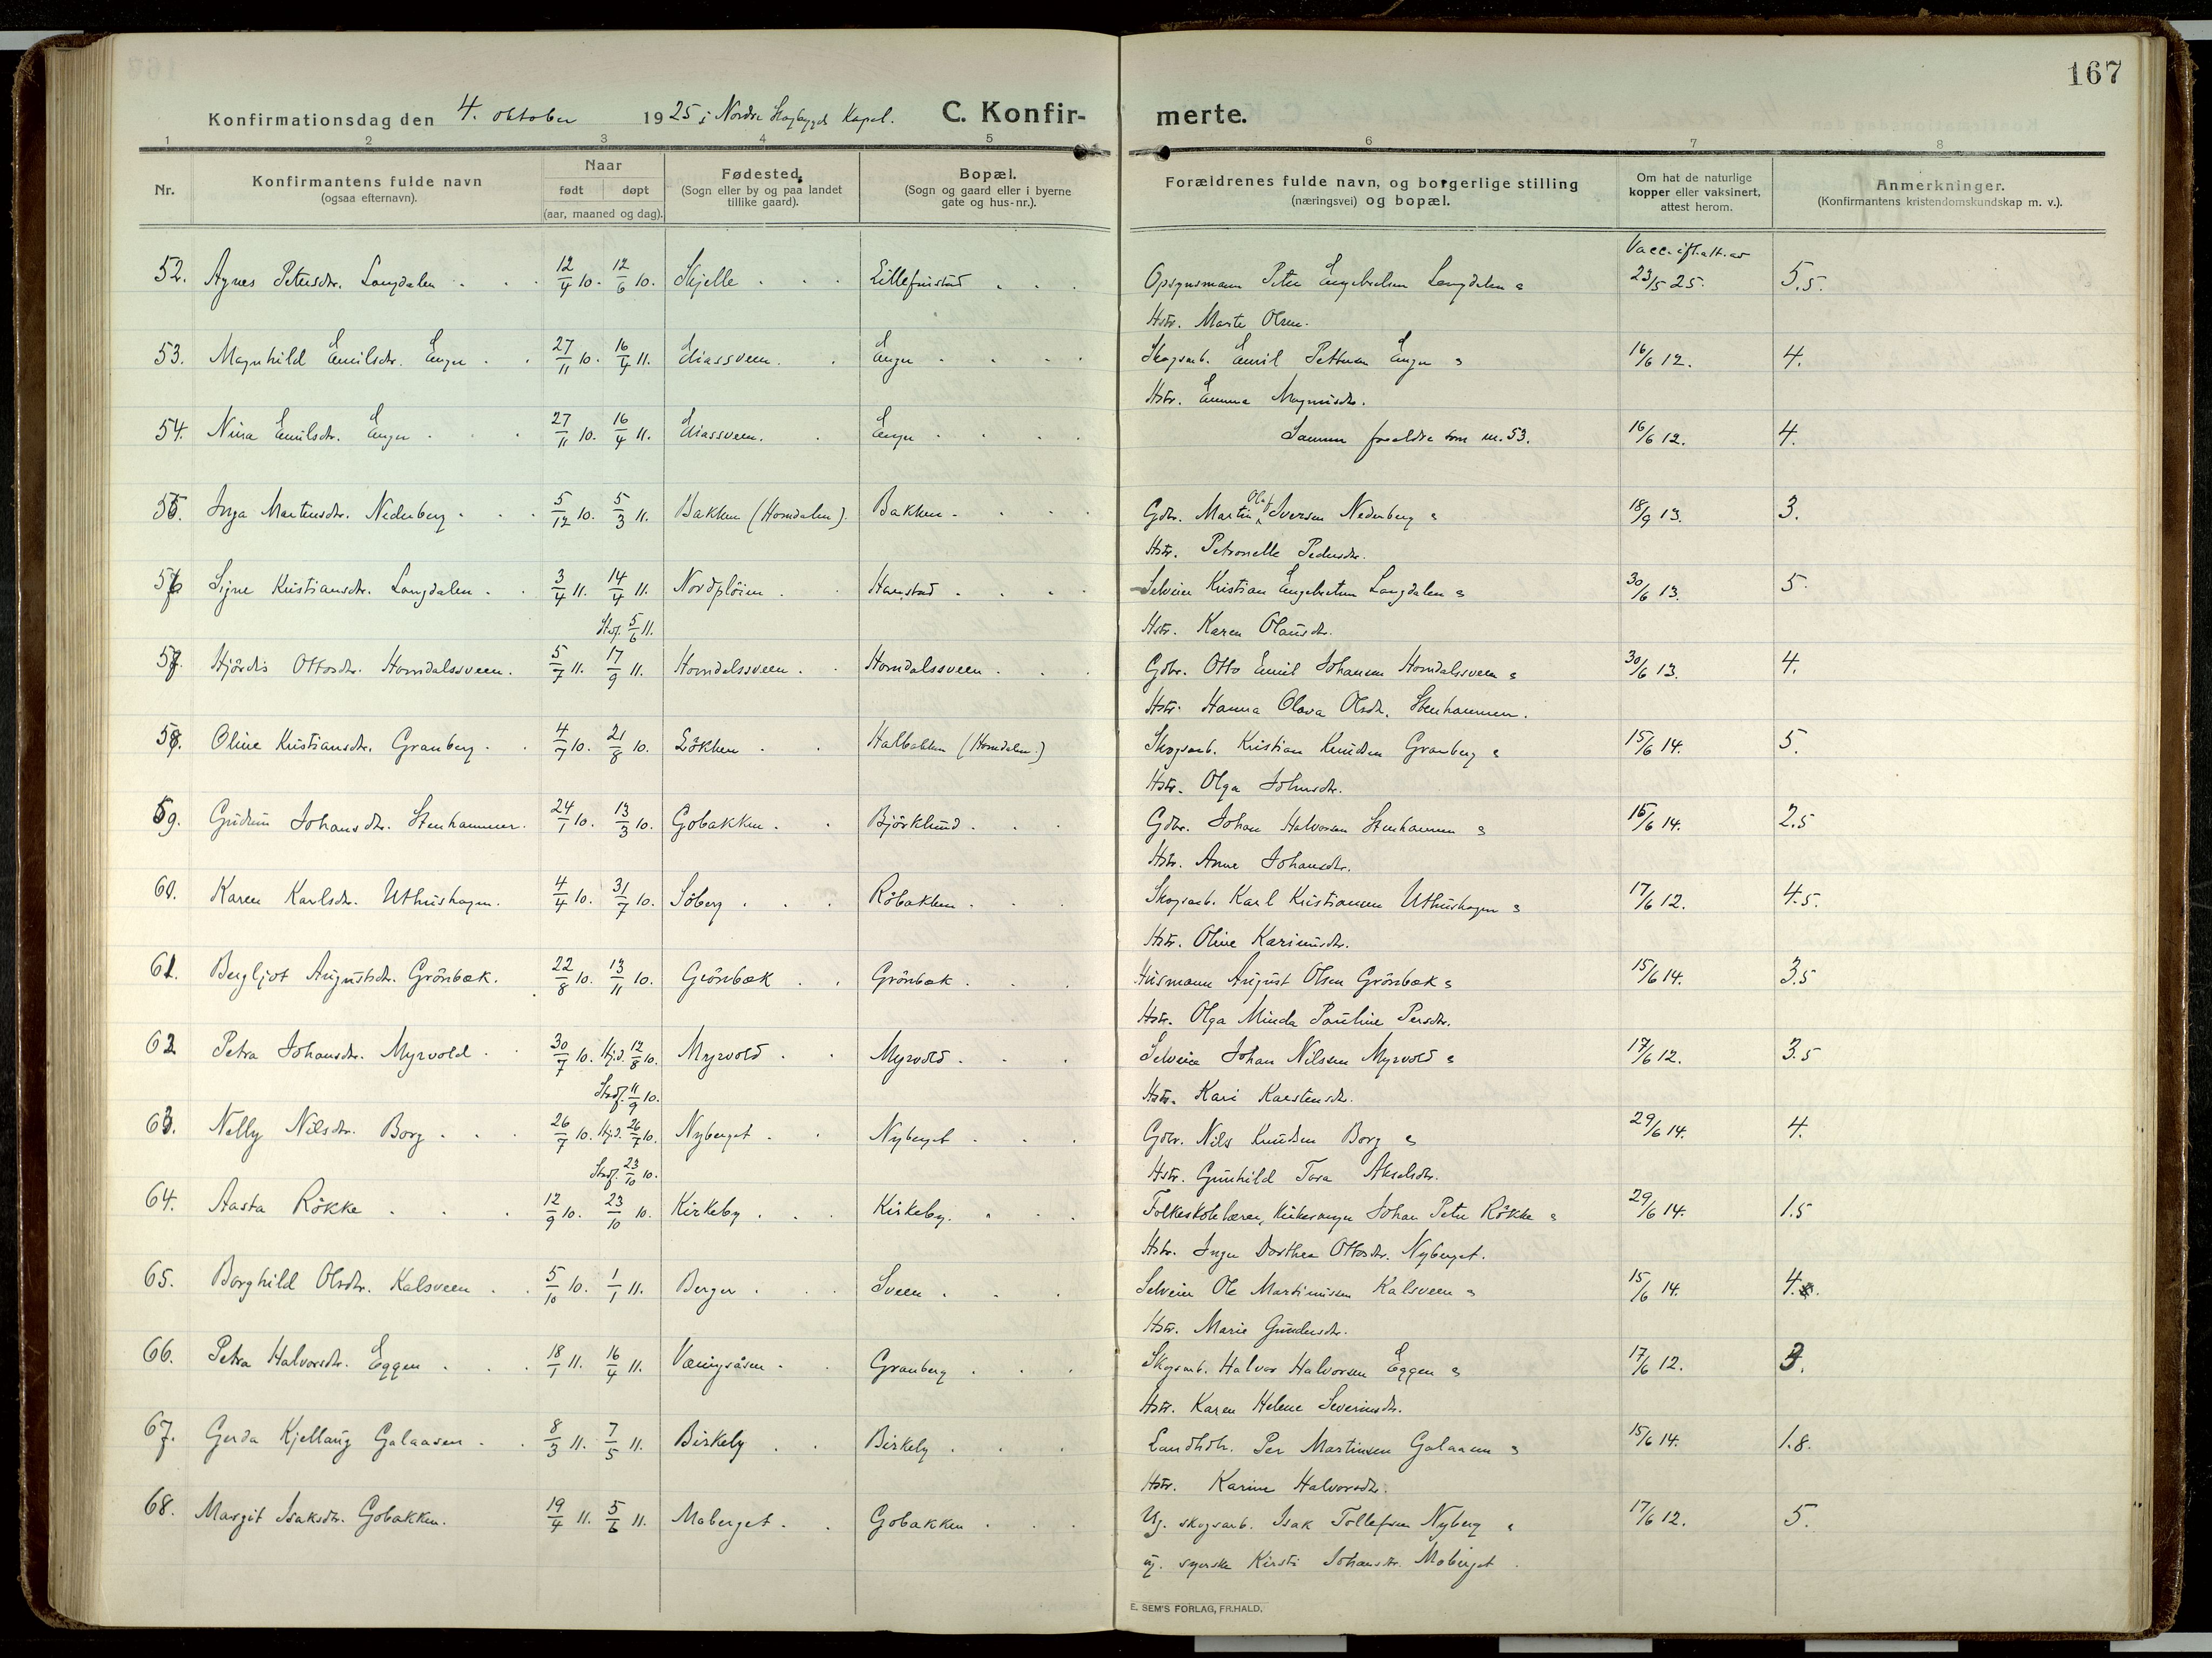 167
Konfirmationsdag den 4. oktober 1925 i Nordre Skogbygds Kapel. C. Konfir- merte.
1 2 3 4 5 6 7 8
Nr. Konfirmantens fulde navn (ogsaa efternavn). Naar født døpt (aar, maaned og dag). Fødested. (Sogn eller by og paa landet tillike gaard). Bopæl. (Sogn og gaard eller i byerne gate og hus-nr.). Forældrenes fulde navn, og borgerlige stilling (næringsvei) og bopæl. Om hat de naturlige kopper eller vaksinert, attest herom. Anmerkninger. (Konfirmantens kristendomskundskap m. v.).
Vacc. ifl. att. av
52. Agnes Petersdr. Langdalen 12/4 10. 12/6 10. Skjelle Lillefuistad Opsynsmann Peter Engebretsen Langdalen &
23/5 25. 5.5.
Hstr. Marte Olsen.
53. Magnhild Emilsdr. Enger 27/11 10. 16/4 11. Eliassveen. Enger Skogsarb. Emil Pettersen Enger & 16/6 12. 4.
Hstr. Emma Magnusdr.
54. Nina Emilsdr. Enger 27/11 10. 16/4 11. Eliassveen. Enger Samme forældre som nr. 53. 16/6 12. 4.
55. Inga Martinsdr. Nederberg 5/12 10. 5/3 11. Bakken (Horndalen). Bakken Gdbr. Martin Olaf Iversen Nederberg & 18/9 13. 3.
Hstr. Petronelle Pedersdr.
56 Signe Kristiansdr. Langdalen 3/4 11. 14/4 11. Nordpløien Hanstad Selveier Kristian Engebretsen Langdalen & 30/6 13. 5.
Stadf. 5/6 11. Hstr. Karen Olausdr.
57. Hjördis Ottosdr. Horndalssveen. 5/7 11. 17/9 11. Horndalssveen. Horndalssveen. Gdbr. Otto Emil Johansen Horndalssveen & 30/6 13. 4.
Hstr. Hanna Olava Olsdr. Stenhammer.
58. Oline Kristiansdr. Granberg 4/7 10. 21/8 10. Løkken Halbakken (Horndalen) Skogsarb. Kristian Knudsen Granberg & 15/6 14. 5.
Hstr. Olga Johnsdr.
59. Gudrun Johansdr. Stenhammer. 24/1 10. 13/3 10. Gobakken. Björklund. Gdbr. Johan Halvorsen Stenhammer & 15/6 14. 2.5
Hstr. Anne Johansdr.
60. Karen Karlsdr. Uthushagen. 4/4 10. 31/7 10. Söberg Röbakken Skogsarb. Karl Kristiansen Uthushagen & 17/6 12. 4.5.
Hstr. Oline Karinusdr.
61. Bergljot Augustsdr. Grönbæk. 22/8 10. 13/11 10. Grönbæk Grönbæk Husmann August Olsen Grönbæk & 15/6 14. 3.5
Hstr. Olga Minda Pauline Persdr.
62 Petra Johansdr. Myrvold 30/7 10. Hj.d. 12/8 10. Myrvold Myrvold Selveier Johan Nilssen Myrvold & 17/6 12. 3.5
Stadf. 11/9 10. Hstr. Kari Karstensdr.
63. Nelly Nilsdr. Borg 26/7 10. Hj.d. 26/7 10. Nyberget Nyberget Gdbr. Nils Knudsen Borg & 29/6 14. 4.
Stadf. 23/10 10. Hstr. Gunhild Tora Akselsdr.
64. Aasta Rökke 12/9 10. 23/10 10. Kirkeby Kirkeby. Folkeskolelærer, kirkesanger Johan Peter Rökke & 29/6 14. 1.5
Hstr. Inger Dorthea Ottosdr. Nyberget.
65. Borghild Olsdr. Kalsveen 5/10 10. 1/1 11. Berger Sveen Selveier Ole Martinussen Kalsveen & 15/6 14. 4.
Hstr. Marie Gundersdr.
66. Petra Halvorsdr. Eggen 18/1 11. 16/4 11. Væringsåsen Granberg Skogsarb. Halvor Halvorsen Eggen & 17/6 12. 3.
Hstr. Karen Helene Severinsdr.
67. Gerda Kjellaug Galaasen 8/3 11. 7/5 11. Birkely Birkely Landhdlr. Per Martinsen Galaasen & 15/6 14. 1.8.
Hstr. Karine Halvorsdr.
68. Margit Isaksdr. Gobakken. 19/4 11. 5/6 11. Moberget Gobakken Ug. skogsarb. Isak Tollefsen Nyberg & 17/6 12. 5.
ug. syerske Kirsti Johansdr. Moberget
E. SEM'S FORLAG, FR.HALD.